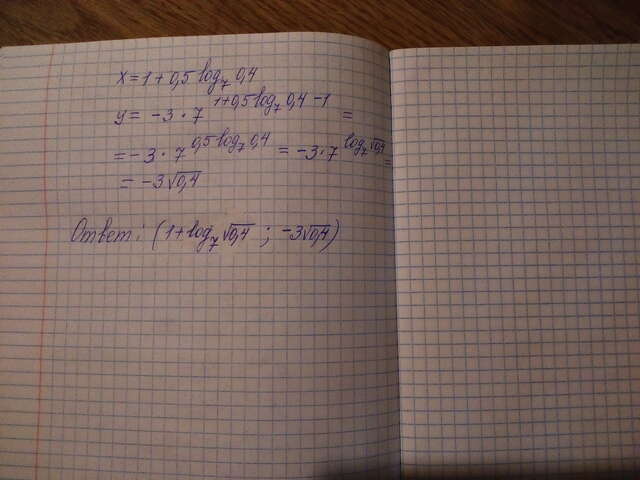 x = 1 + 0,5 log₇ 0,4
y = -3 · 7^(1+0,5 log₇ 0,4 -1) =
= -3 · 7^(0,5 log₇ 0,4) = -3 · 7^(log₇ √0,4) =
= -3√0,4
Ответ: (1 + log₇ √0,4 ; -3√0,4)